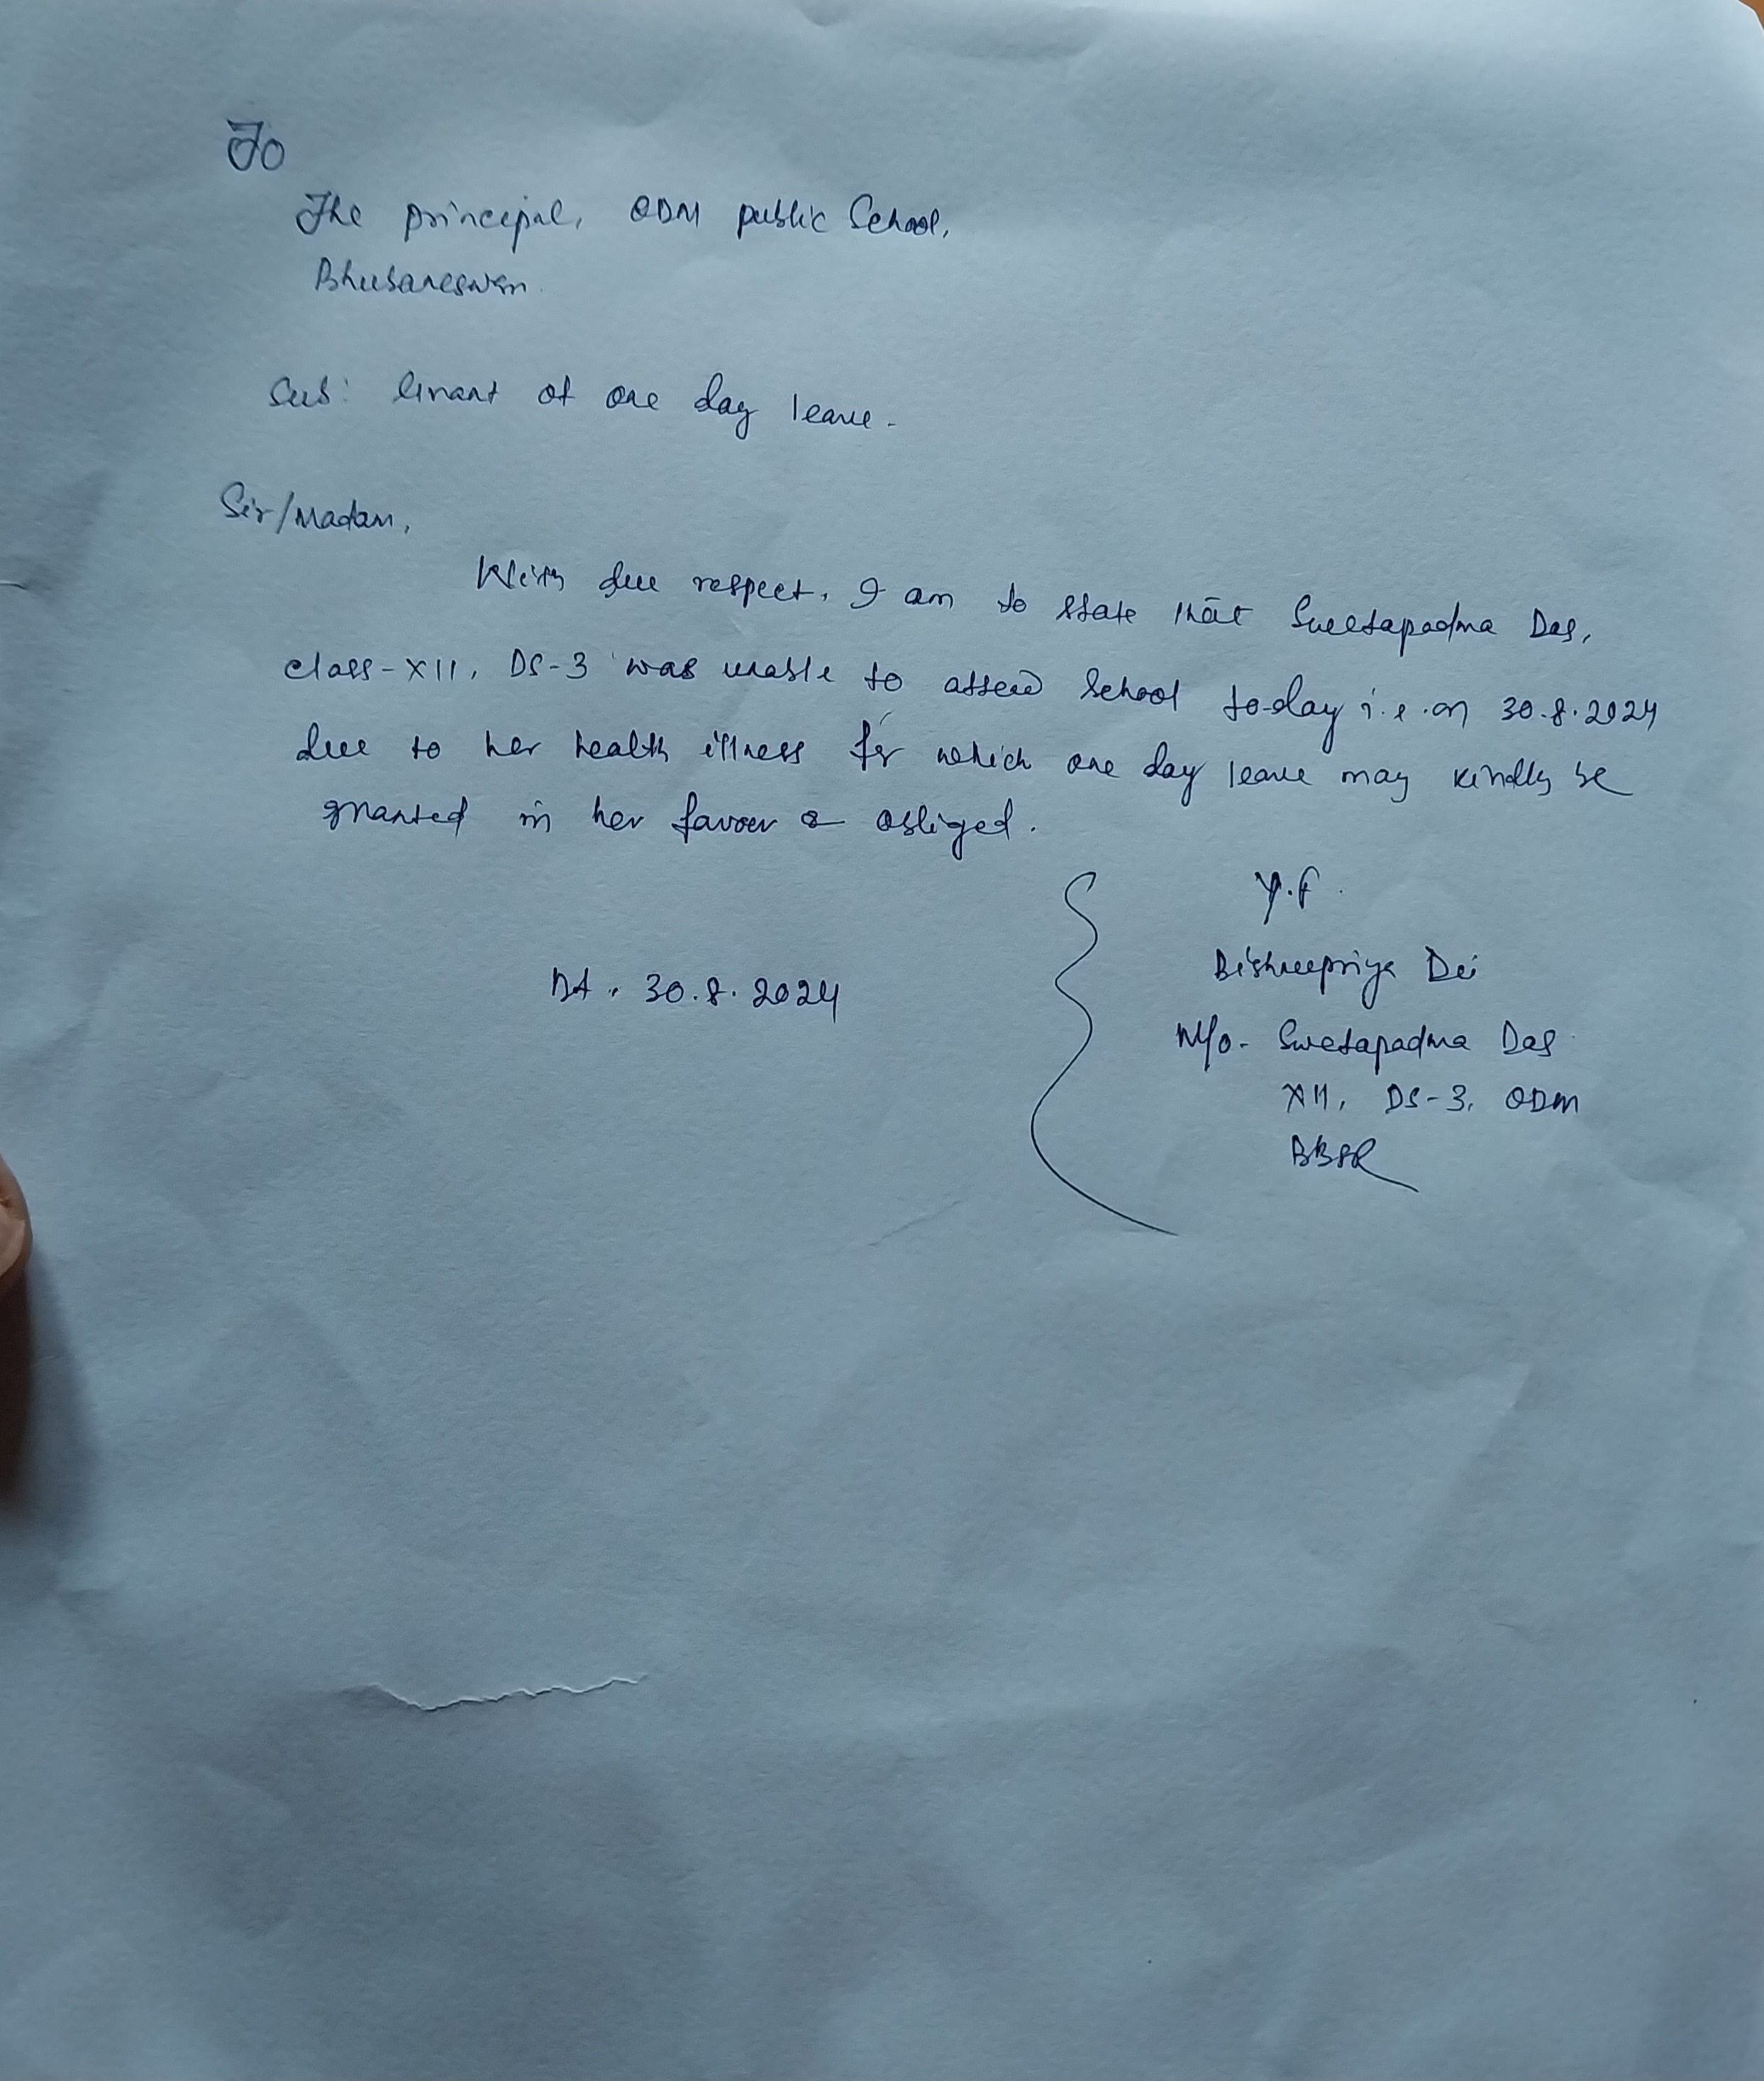 To
The principal, ODM public School,
Bhubaneswar.
Sub: Grant of one day leave.
Sir/Madam,
With due respect, I am to state that Swetapadma Das,
class-XII, DS-3 was unable to attend School to-day i.e. on 30.8.2024
due to her health illness for which one day leave may kindly be
granted in her favour & obliged.
Y.F.
Bishnupriya Dei
Dt. 30.8.2024
M/o- Swetapadma Das
XII, DS-3, ODM
BBSR